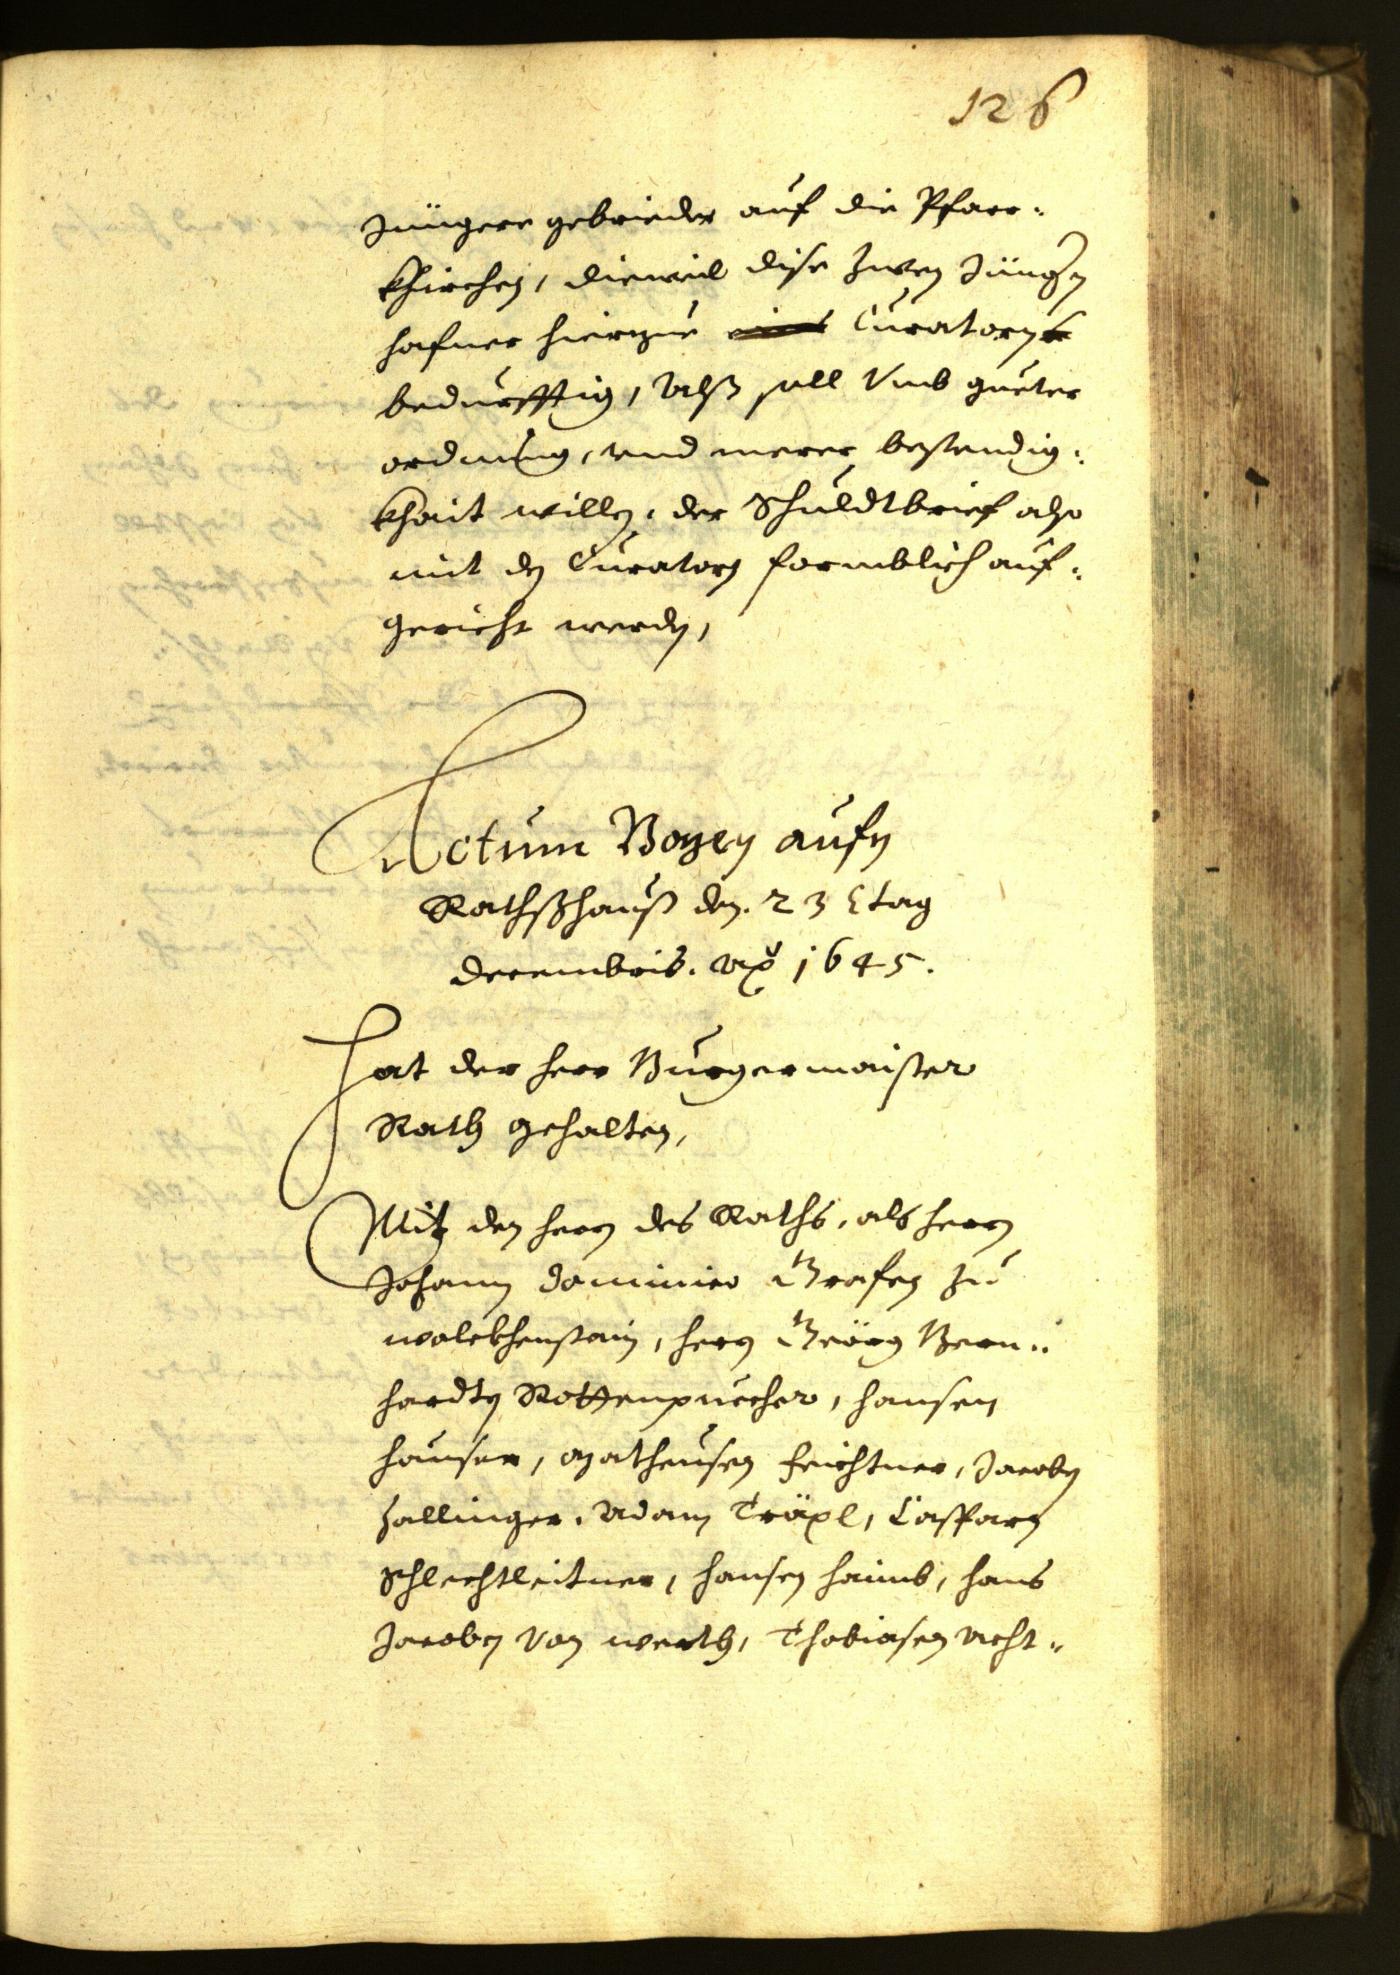 126
Jüngere gebrieder auf die Pfarr-
khirchen, dieweil dise zwen Jüngen
hafner hierzue Curatorn
bedürfftig, Alß soll Umb gueter
ordnung, und merer bestendig-
khait willen, der Schuldtbrief also
mit den Curatorn formblich auf-
gericht werden,
Actum Bozen aufm
Rathßhauß den 23 tag
decembris. Ao 1645.
Hat der herr Burgermaister
Rath gehalten,
Mit den herrn des Raths, als herrn
Johann dominico Grafen zu
wolckhenstain, herrn Geörg Bern-
hardtn Rottenpuecher, hansen
hauser, Matheusen feichtner, Jacoben
Zallinger, Adam Träpl, Casparn
Schlechtleitner, hansen haimb, hans
Jacoben von werth, Thobiasen Acht-